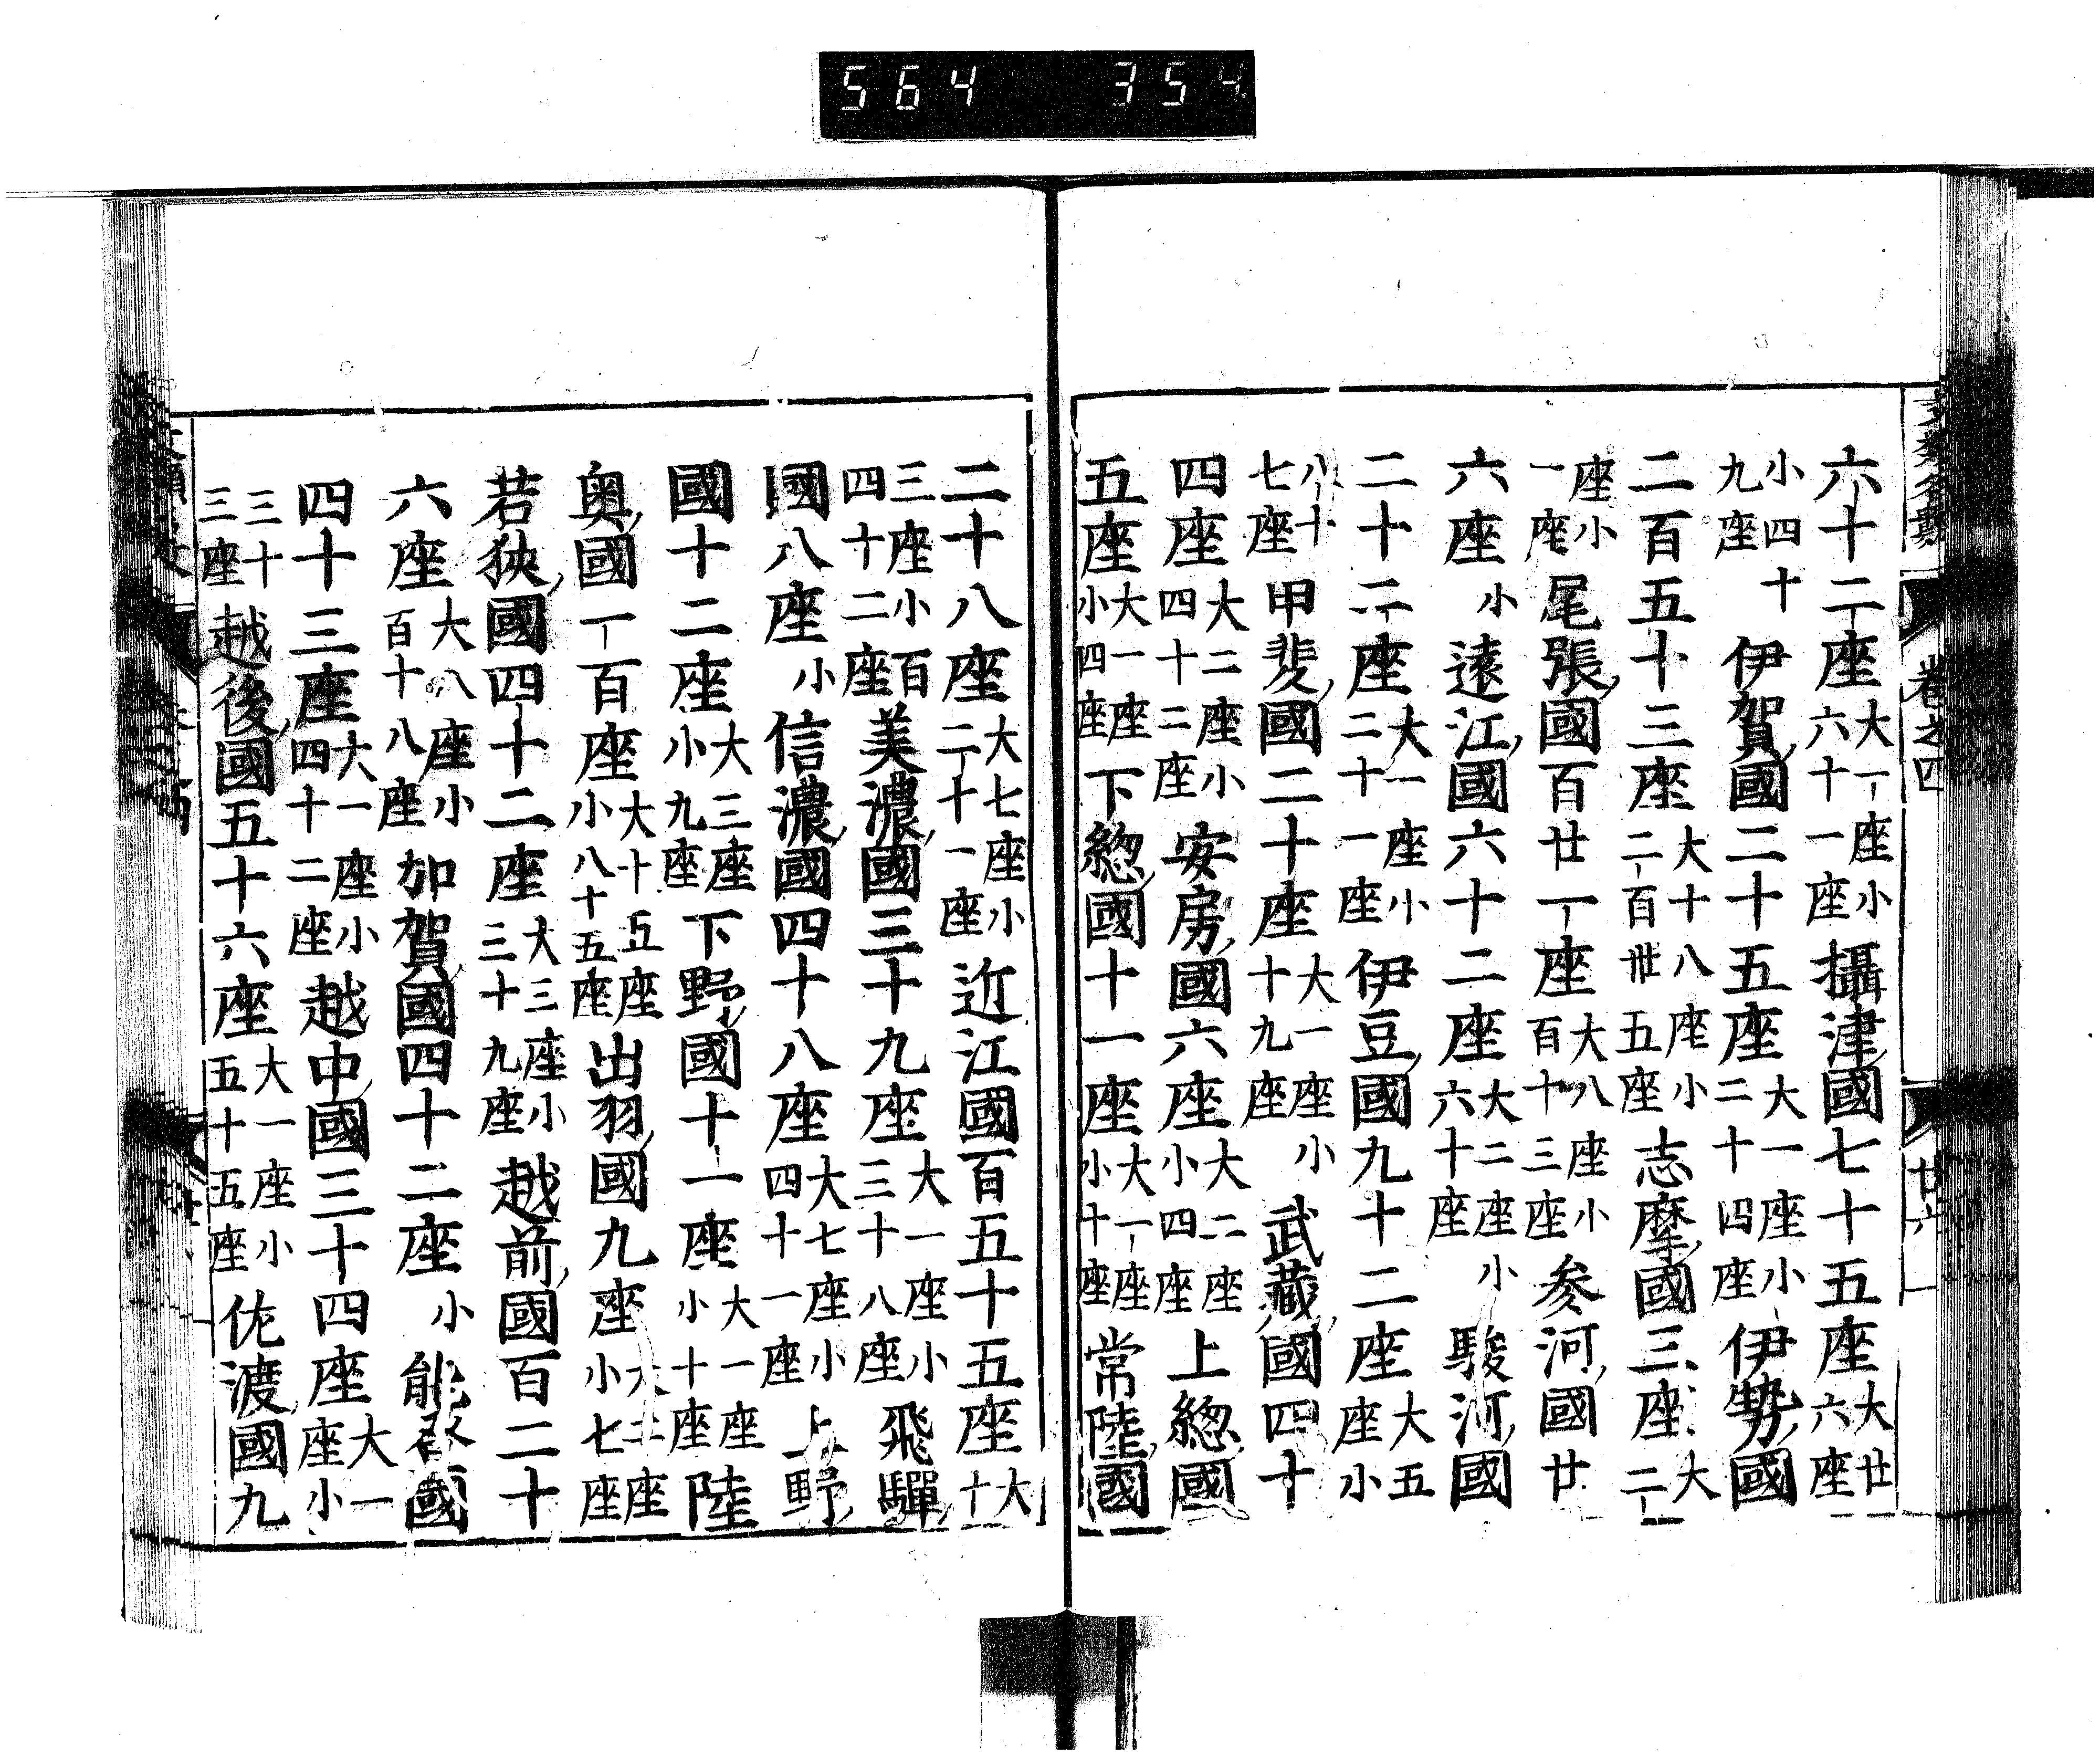 564 354
卷之四 廿六
六十二座大一座小六十一座攝津國七十五座大廿六座
小四十九座伊賀國二十五座大一座小二十四座伊勢國
二百五十三座大十八座小二百卅五座志摩國三座大二
座小一座尾張國百廿一座大八座小百十三座參河國廿
六座小遠江國六十二座大二座小六十座駿河國
二十二座大一座小二十一座伊豆國九十二座大五座小
八十七座甲斐國二十座大一座小十九座武藏國四十
四座大二座小四十二座安房國六座大二座小四座上總國
五座大一座小四座下總國十一座大一座小十座常陸國
二十八座大七座小二十一座近江國百五十五座大十
三座小百四十二座美濃國三十九座大一座小三十八座飛驒
國八座小信濃國四十八座大七座小四十一座上野
國十二座大三座小九座下野國十一座大一座小十座陸
奥國一百座大十五座小八十五座出羽國九座大二座小七座
若狹國四十二座大三座小三十九座越前國百二十
六座大八座小百十八座加賀國四十二座小能登國
四十三座大一座小四十二座越中國三十四座大一座小
三十三座越後國五十六座大一座小五十五座佐渡國九